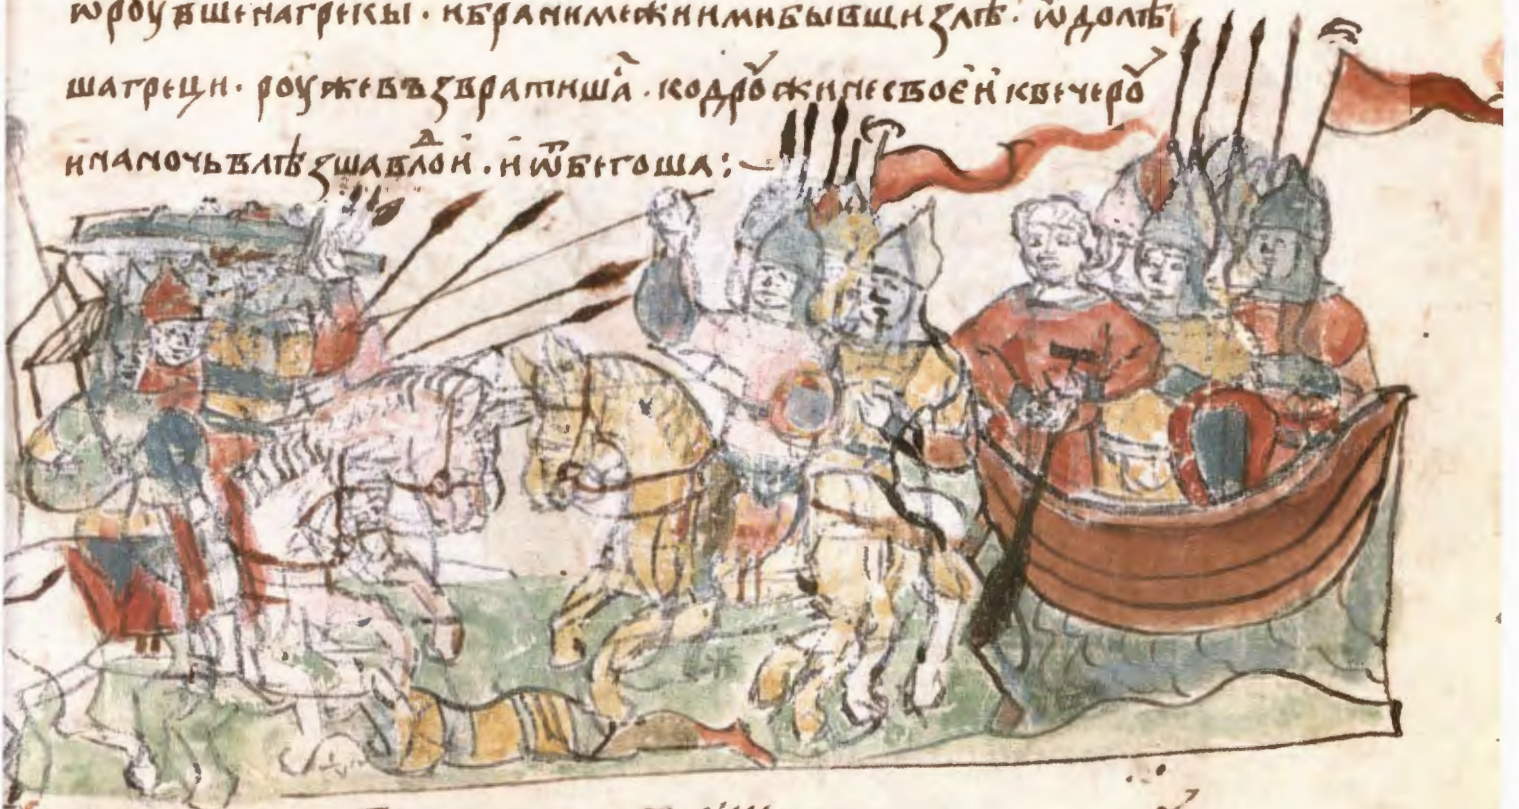 ѡроужше на грекы · и брани межи ими бывши злѣ · ѡдолѣ
ша греци · роу же възвратишаⷭ · ко дроужине своеи к вечероу
и на ночь влѣзша в лоⷣи · и ѿбегоша :